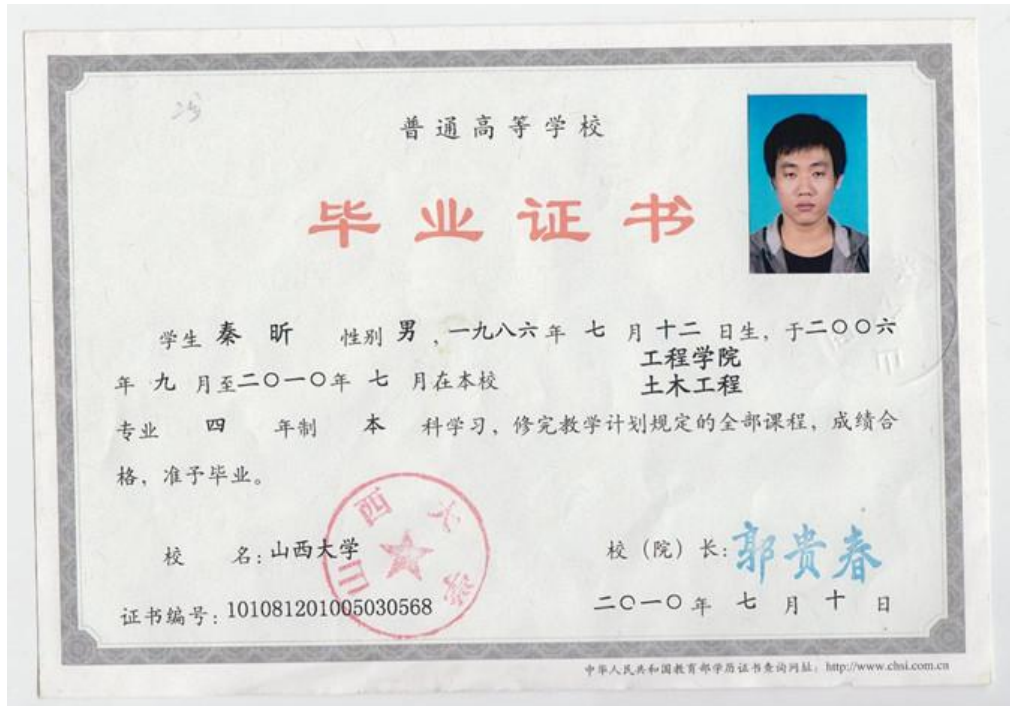 普通高等学校
毕业证书
学生 秦 昕 性别 男，一九八六年 七 月 十二 日生，于二〇〇六
工程学院
年 九 月至二〇一〇年 七 月在本校 土木工程
专业 四 年制 本 科学习，修完教学计划规定的全部课程，成绩合
格，准予毕业。
山西大学
校 名：山西大学 校（院）长：郭贵春
证书编号：101081201005030568 二〇一〇年 七 月 十 日
中华人民共和国教育部学历证书查询网址：http://www.chsi.com.cn